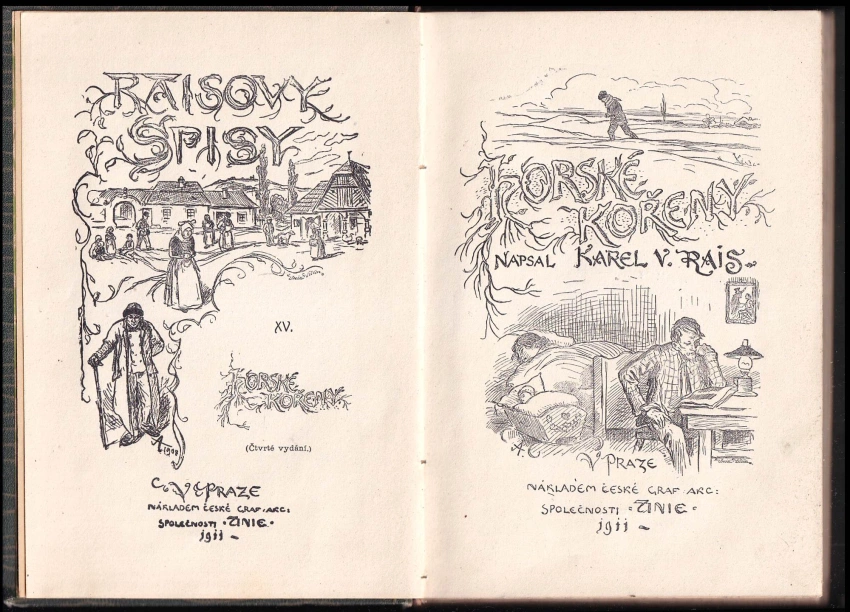 RAISOVY
SPISY
XV.
HORSKÉ
KOŘENY.
(Čtvrté vydání.)
1908
V PRAZE
NÁKLADEM ČESKÉ GRAF. AKC:
SPOLEČNOSTI "UNIE"
1911
HORSKÉ
KOŘENY.
NAPSAL KAREL V. RAIS.
V PRAZE
NÁKLADEM ČESKÉ GRAF. AKC:
SPOLEČNOSTI "UNIE"
1911